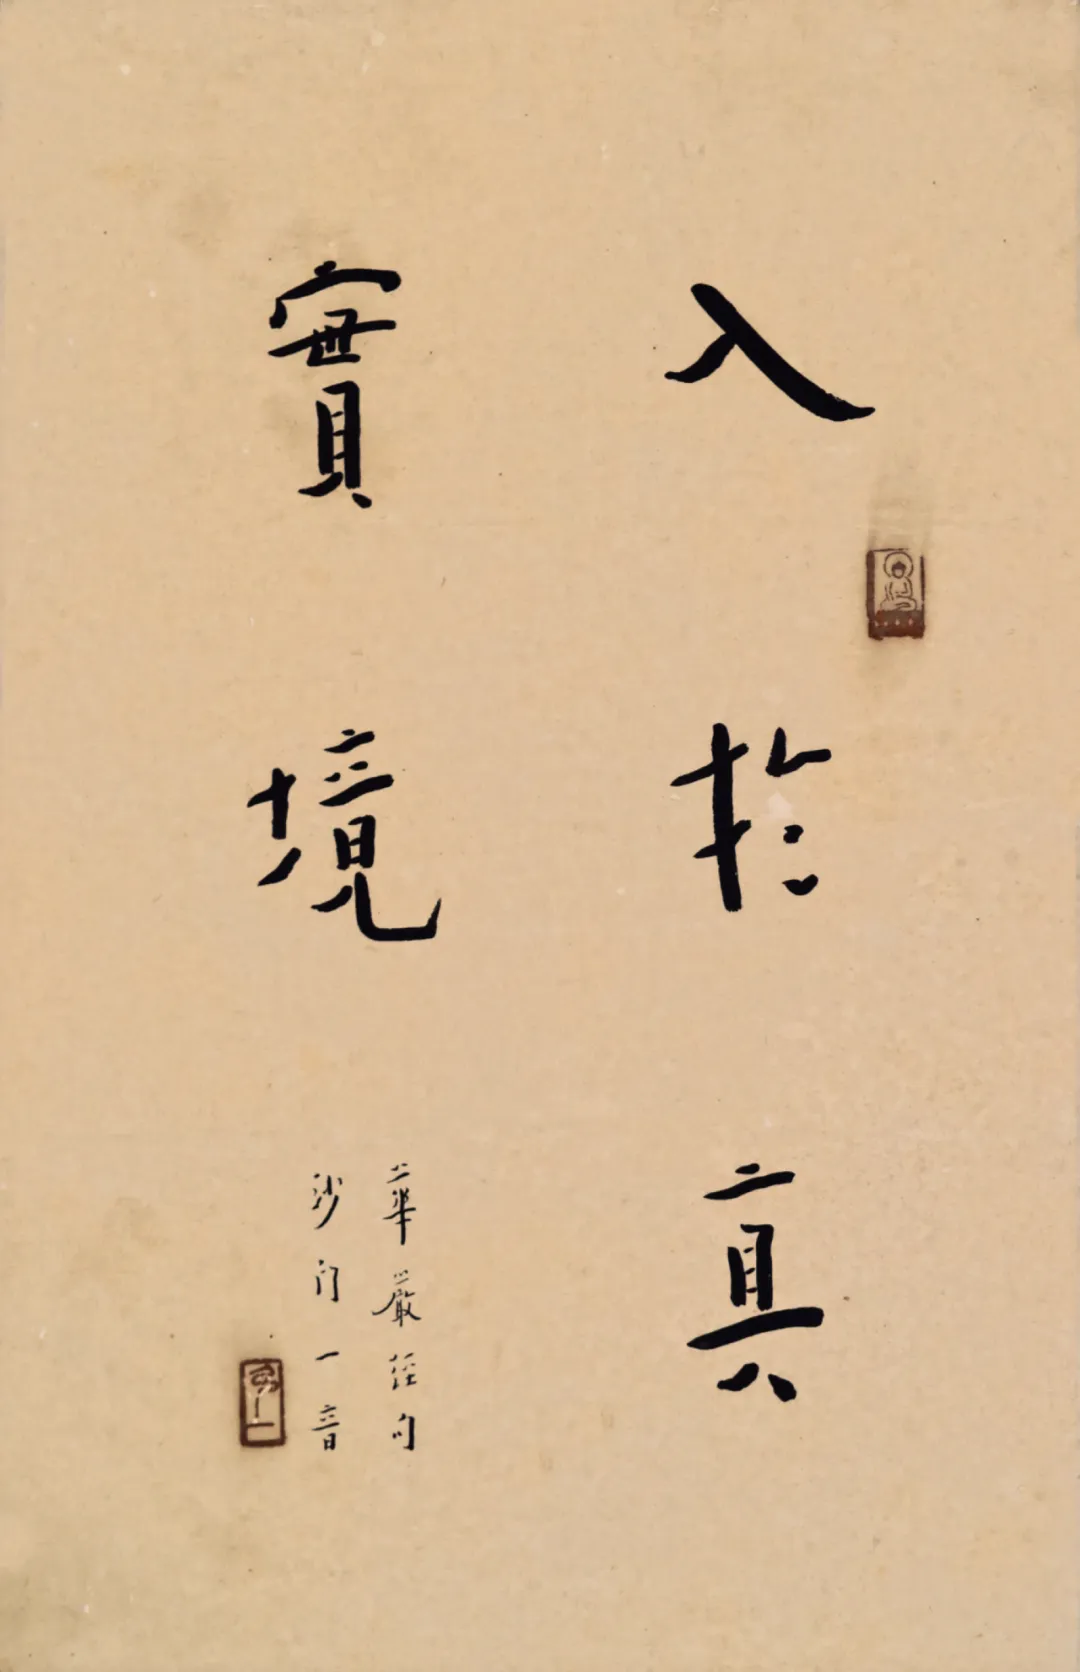 入於真
實境
華嚴經句
沙门一音
弘一